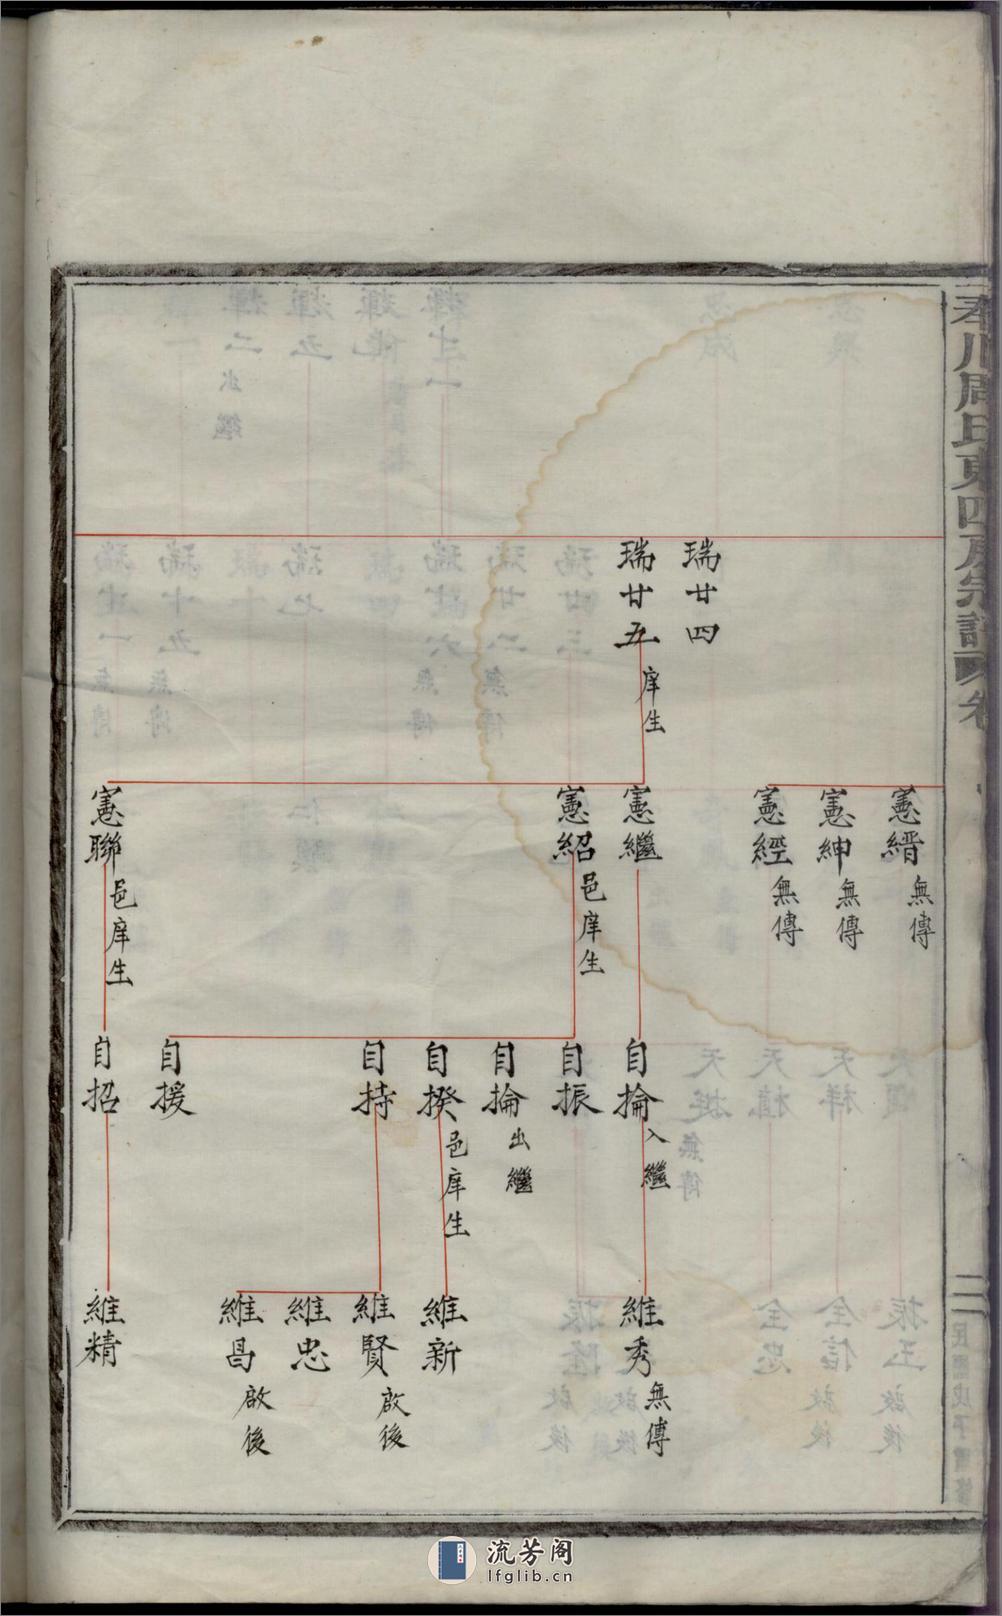 奉川周氏東四房宗譜
瑞廿四
瑞廿五 庠生
憲縉 無傳
憲紳 無傳
憲經 無傳
憲繼
憲紹 邑庠生
憲聯 邑庠生
自掄 入繼
自振
自掄 出繼
自揆 邑庠生
自持
自援
自招
維秀 無傳
維新
維賢 啟後
維忠
維昌 啟後
維精
二
民國戊子重修
流芳阁
lfglib.cn